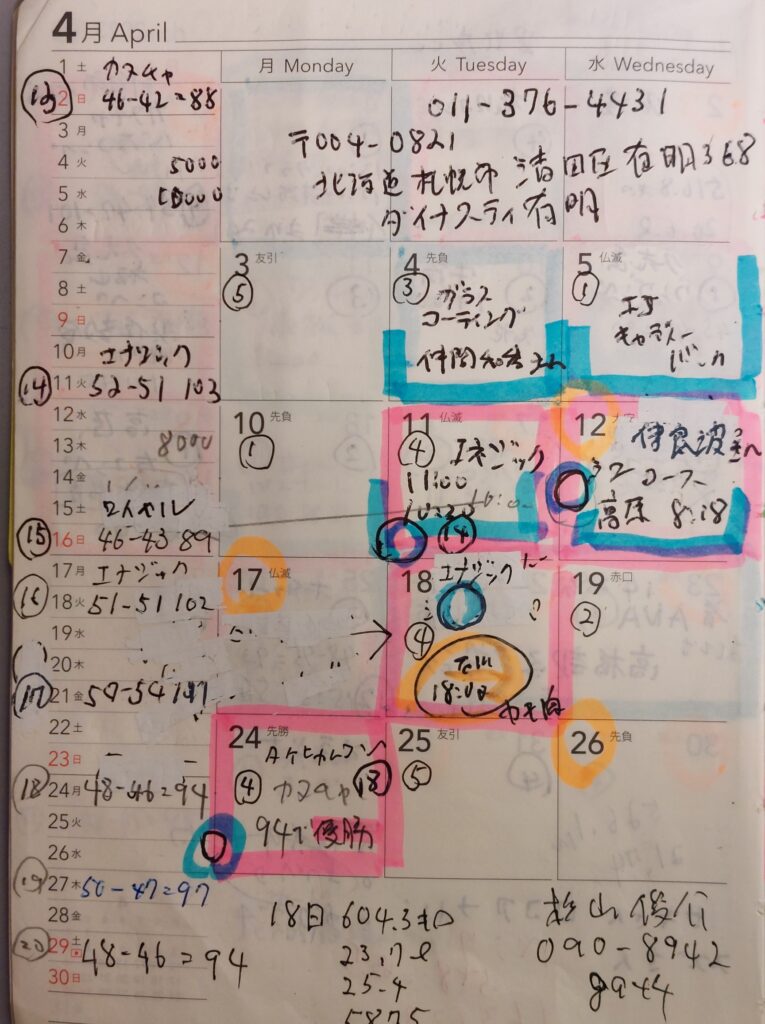 4月 April
月 Monday
火 Tuesday
水 Wednesday
1 土 カヌチャ
⑬ 2 日 46-42=88
3 月
4 火 5000
5 水 10000
6 木
7 金
8 土
9 日
10 月 エナジック
⑭ 11 火 52-51 103
12 水
13 木 8000
14 金
15 土
⑮ 16 日 46-43 89
17 月 エナジック
⑯ 18 火 51-51 102
19 水
20 木
⑰ 21 金
22 土
23 日
⑱ 24 月 48-46=94
25 火
26 水
⑲ 27 木 50-47=97
28 金
⑳ 29 土 48-46=94
30 日
011-376-4431
〒004-0821
北海道札幌市清田区有明368
ダイナスティ有明
3 友引
⑤
4 先負
③ ガラス
コーティング
5 仏滅
①
エナ
10 先負
①
11 仏滅
④ エネジック
11:00
10:30
⑭
12
伊良波
コース
高原 8:18
17 仏滅
18 エナジック
④
18:00
19 赤口
②
24 先勝
④ カヌチャ ⑱
94で優勝
25 友引
⑤
26 先負
18日 604.3キロ
23,7ℓ
25.4
5875
杉山俊介
090-8942
8944